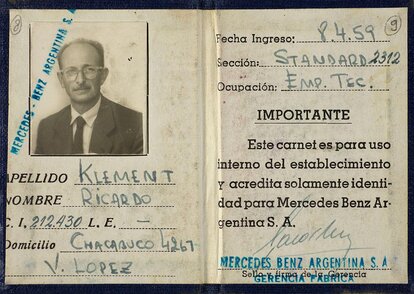 8
MERCEDES - BENZ ARGENTINA S. A.
APELLIDO KLEMENT
NOMBRE RICARDO
C. I. 212.430 L. E. —
Domicilio CHACABUCO 4267
V. LOPEZ
9
Fecha Ingreso: 8.4.59
Sección: STANDARD 2312
Ocupación: EMP. TEC.
IMPORTANTE
Este carnet es para uso
interno del establecimiento
y acredita solamente identi-
dad para Mercedes Benz Ar-
gentina S. A.
MERCEDES BENZ ARGENTINA S. A.
Sello y firma de la Gerencia
GERENCIA FABRICA